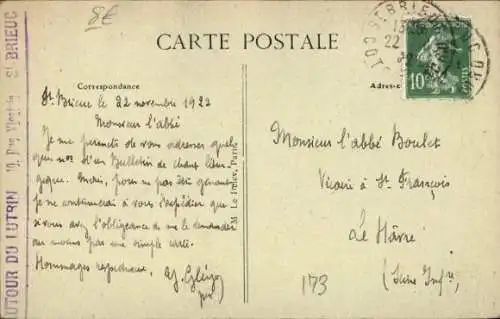 8€
CARTE POSTALE
Correspondance
Adres
10
ST BRIEUC
22
St Brieuc le 22 novembre 1922
Monsieur l'abbé
Je me permets de vous adresser quel
ques nos d'un Bulletin de chant litur
gique. Mais, pour ne pas être gênant,
je ne continuerai à vous l'expédier que
si vous avez l'obligeance de me le demander
au moins par une simple carte.
Hommages respectueux.
Monsieur l'abbé Boulet
Vicaire à St François
Le Hâvre
(Seine Infre)
173
AUTOUR DU LUTRIN
St BRIEUC